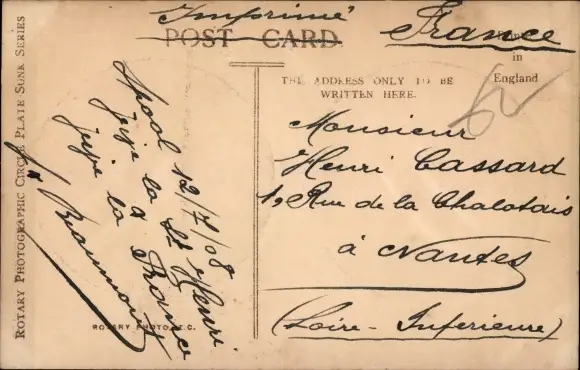 Imprimé
France
POST CARD
in
England
THE ADDRESS ONLY TO BE
WRITTEN HERE.
ROTARY PHOTOGRAPHIC CIRCLE PLATE SUNK SERIES
12/7/08
la St Henri
à
la France
Monsieur
Henri Cassard
1, Rue de la Chalotais
à Nantes
(Loire-Inférieure)
ROTARY PHOTO, E.C.